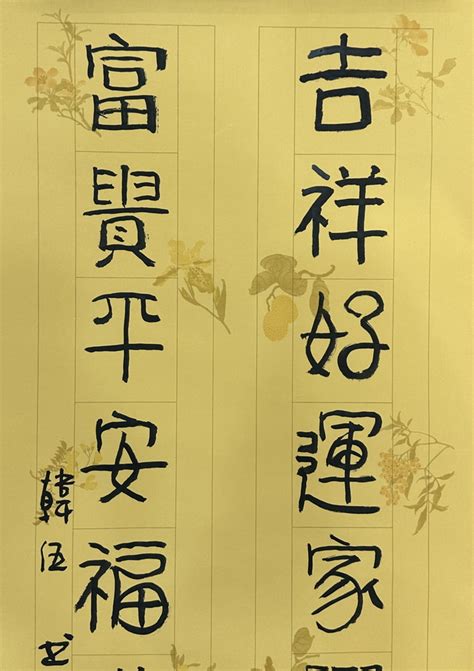 吉祥好運家
富貴平安福
韓伍書